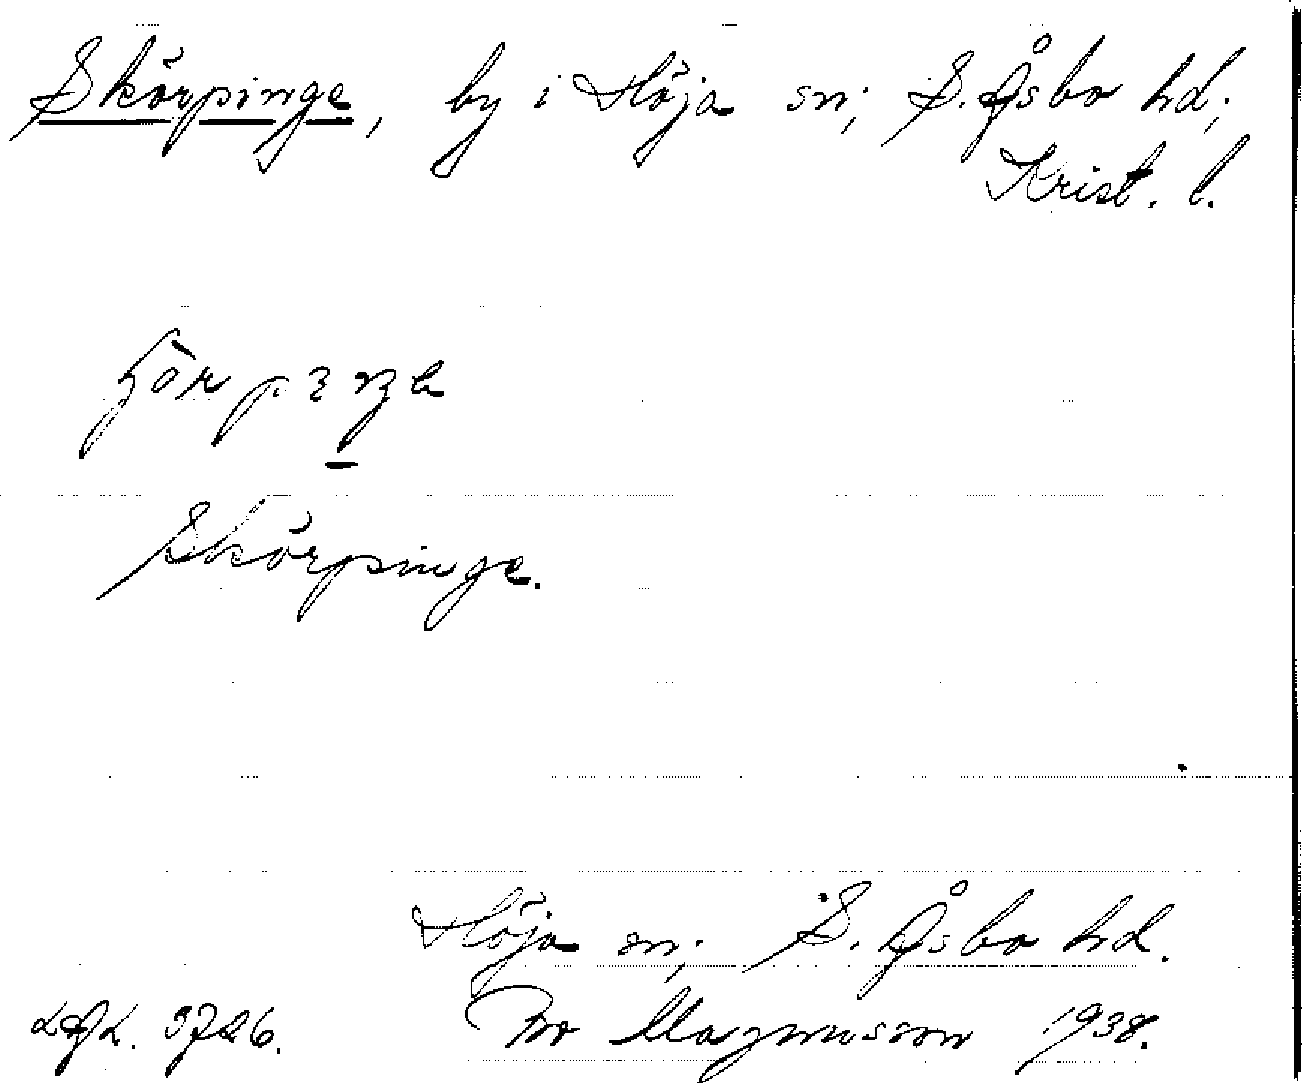 Skörpinge, by i Höja sn; S. Åsbo hd;
Krist. l.
Skörpinge.
Höja sn; S. Åsbo hd.
Per Magnusson 1938.